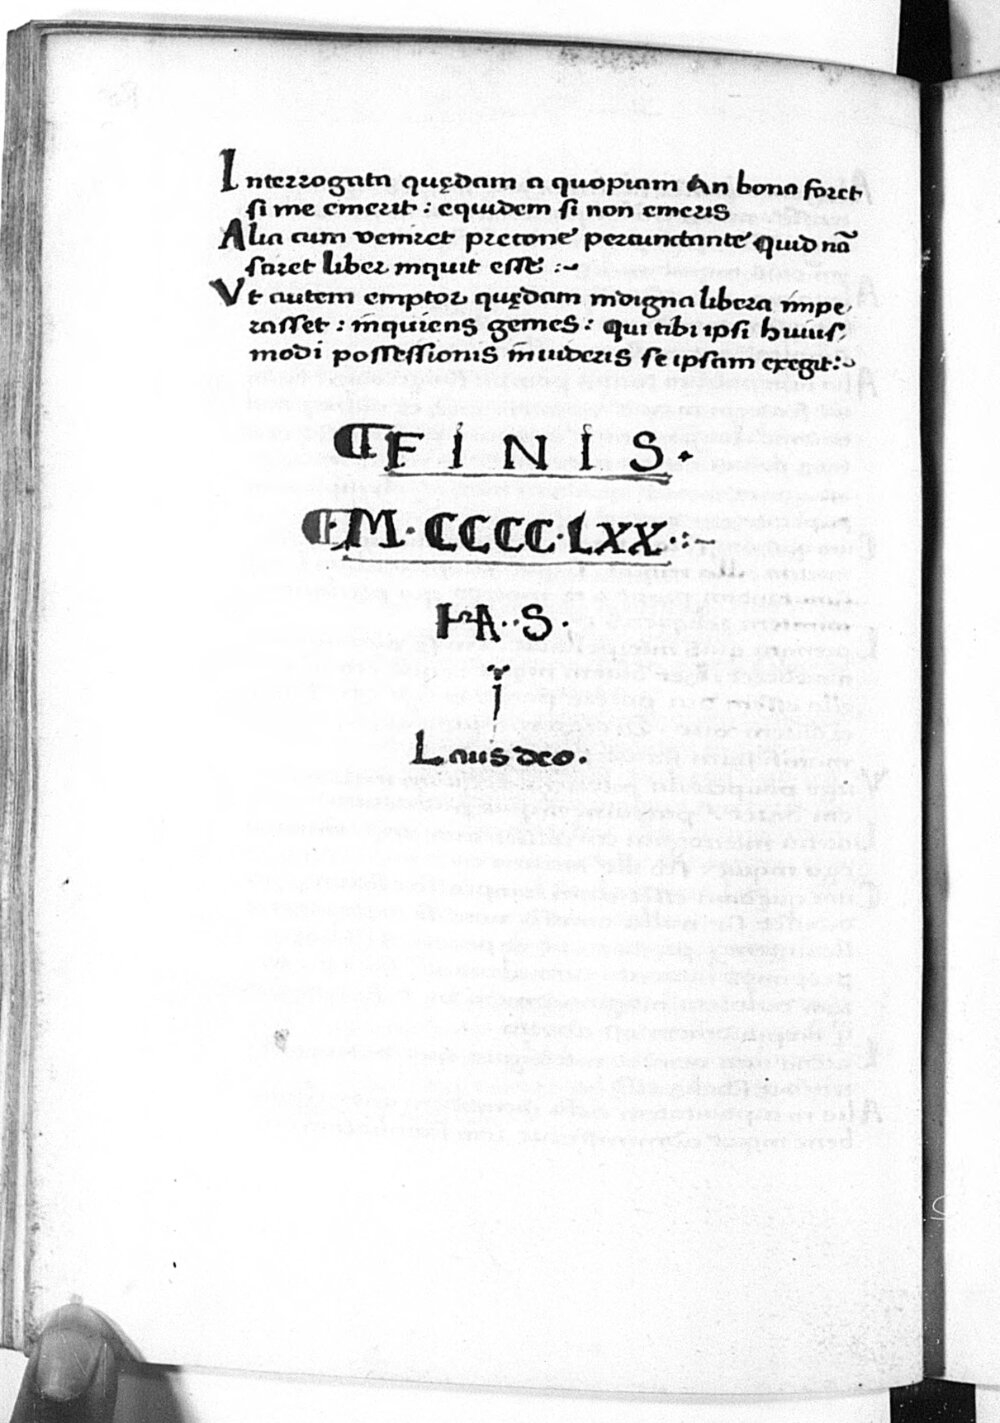 Interrogata quędam a quopiam An bona foret
si me emerit : equidem si non emeris
Alia cum veniret precone percunctante Quid nā
sciret liber inquit esse :~
Vt autem emptor quędam indigna libera impe
rasset : inquiens gemes : Qui tibi ipsi huius
modi possessionis inuideris se ipsam exegit :~
F I N I S ·
M · CCCC · LXX · : ~
HA · · S ·
i
Laus deo .